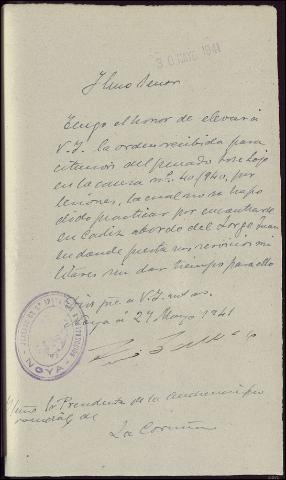 30 MAYO 1941
Ilmo Señor
Tengo el honor de elevar a
V.I. la orden recibida para
citación del penado José
en la causa nº 40/940, por
lesiones, la cual no se ha po
dido practicar por encontrarse
en Cadiz abordo del Jorge Juan
en donde presta sus servicios mi
litares sin dar tiempo para ello
Dios gue a V.I. m. as.
Noya a 27 Mayo 1941
JUZGADO DE 1ª INSTANCIA
NOYA
Ilmo Sr Presidente de la Audiencia pro
vincial de
La Coruña